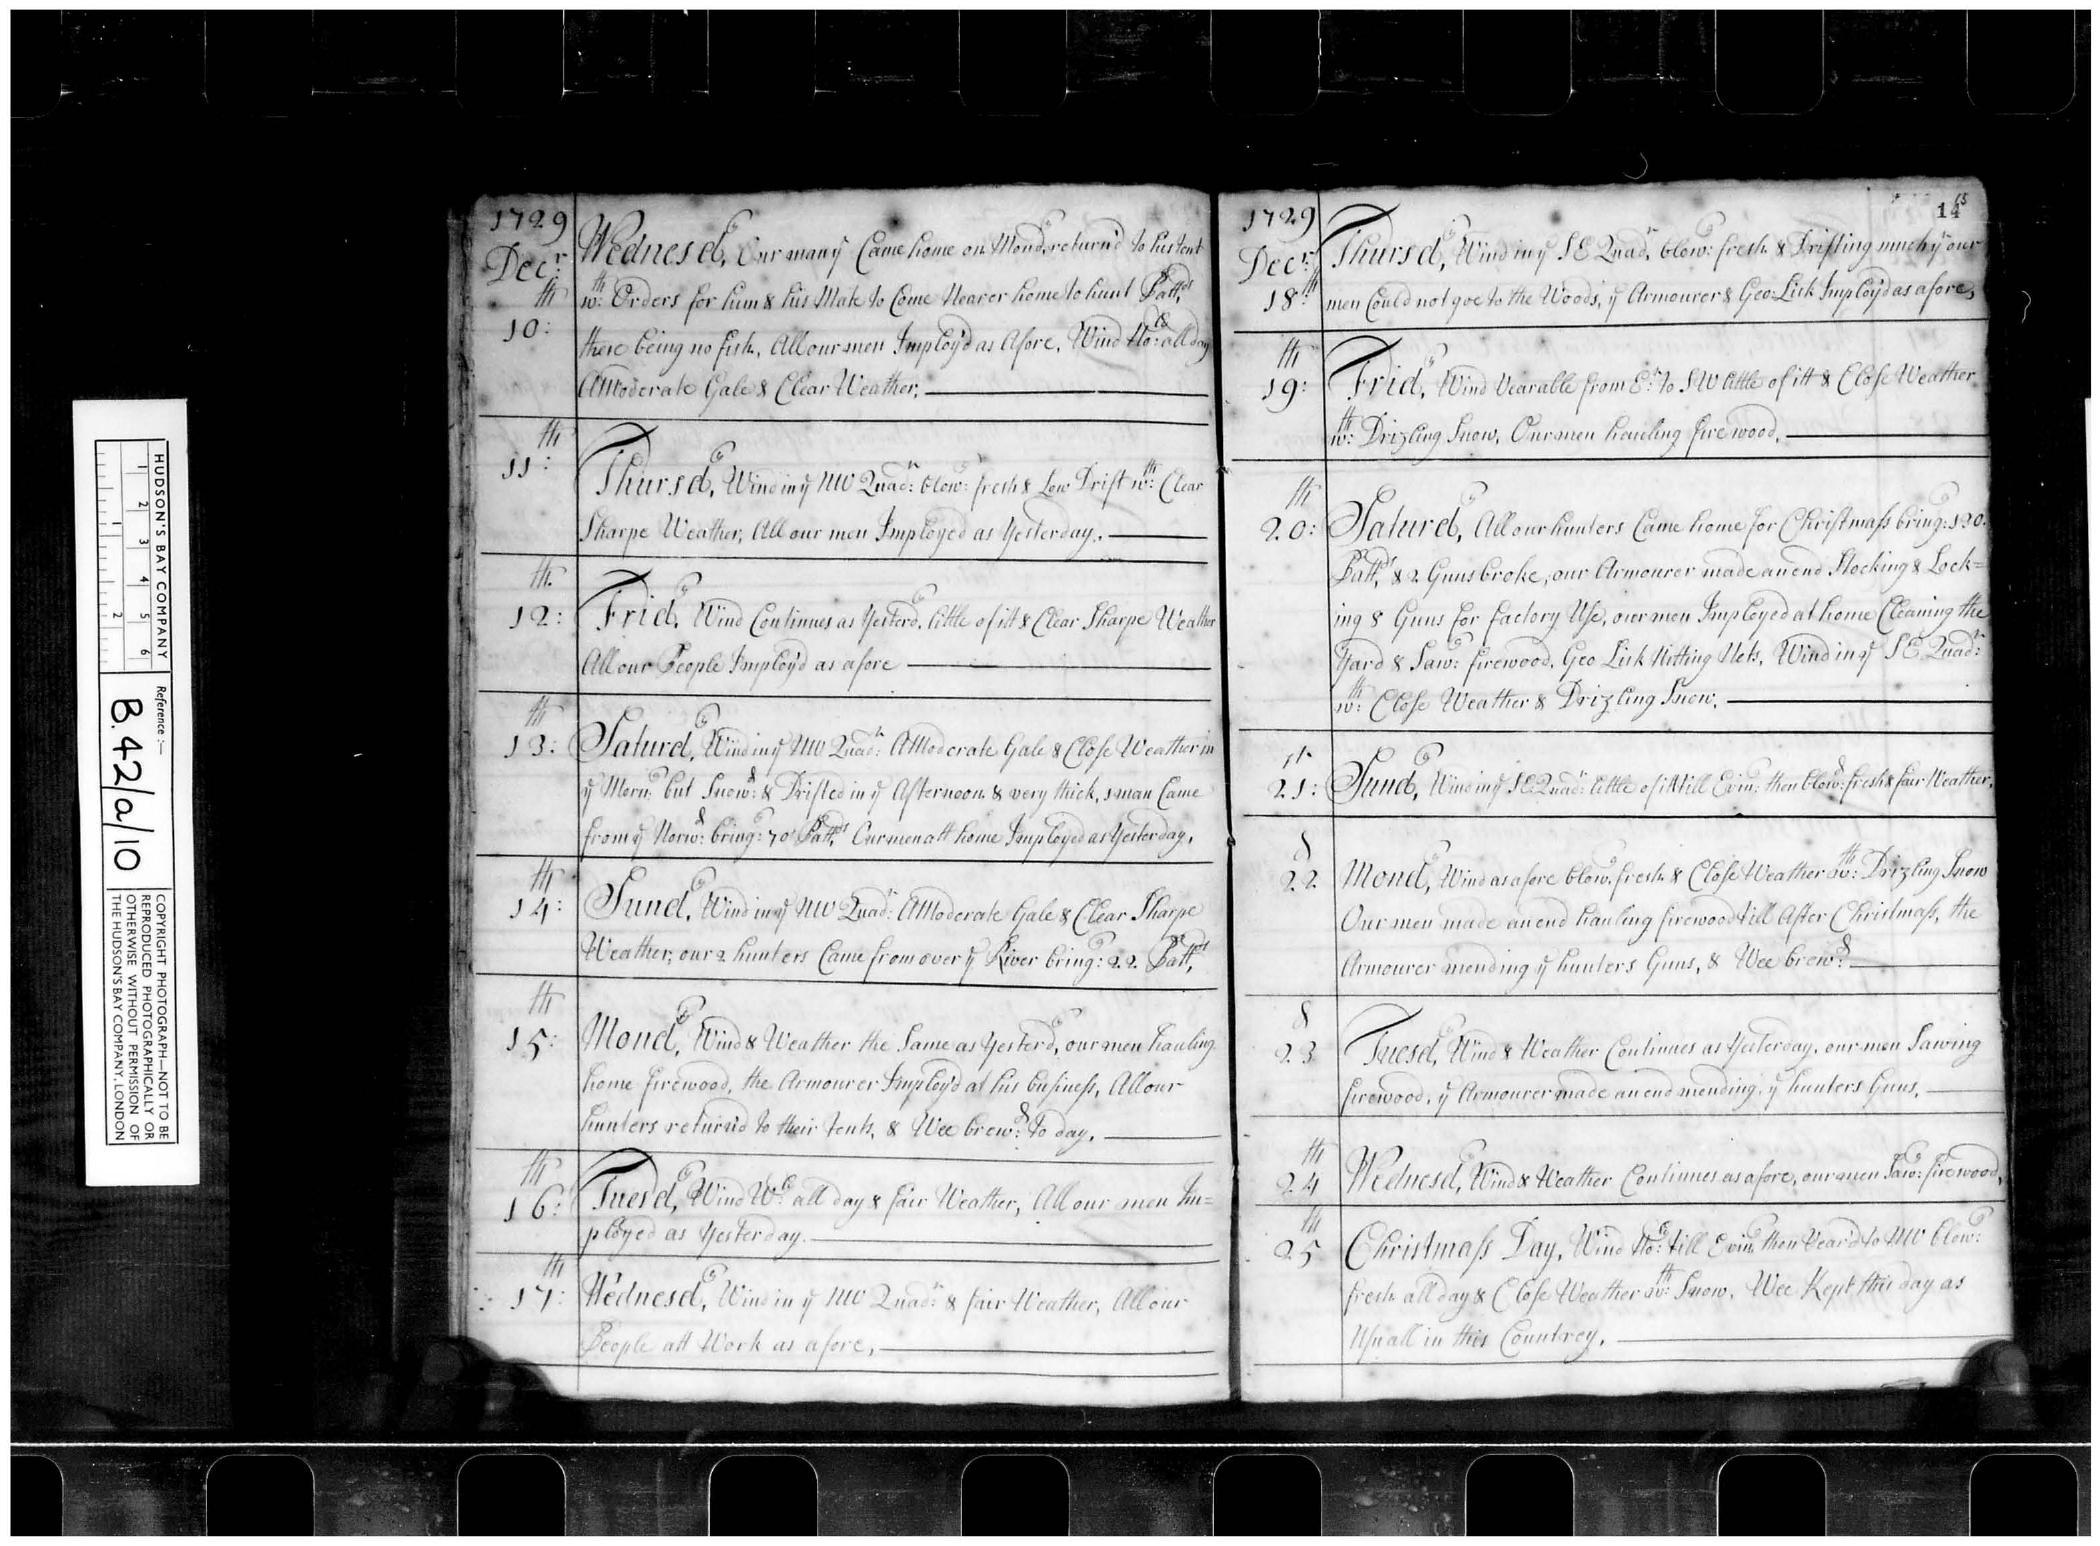 HUDSON'S BAY COMPANY
Reference:—
B.42/a/10
COPYRIGHT PHOTOGRAPH—NOT TO BE
REPRODUCED PHOTOGRAPHICALLY OR
OTHERWISE WITHOUT PERMISSION OF
THE HUDSON'S BAY COMPANY, LONDON
1729
Decr:
10:th Wednesdy, Our man yt Came home on Mondy, return'd to his tent
wth: Orders for him & his Mate to Come Nearer home to hunt Pattds,
there being no fish, All our men Imploy'd as Afore, Wind No:ly all day
A Moderate Gale & Clear Weather,
11:th Thursdy, Wind in ye NW Quadr: blowg: fresh & Low Drift wth: Clear
Sharpe Weather, All our men Imployed as Yesterday,
12:th Fridy, Wind Continues as Yesterdy, little of itt & Clear Sharpe Weather
All our People Imploy'd as afore
13:th Saturdy, Wind in ye NW Quadr: A Moderate Gale & Close Weather in
ye Morng: but Snowd: & Drifted in ye Afternoon & very thick, 1 man Came
from ye Norwd: bringg: 70 Pattds, Our men att home Imployed as Yesterday,
14:th Sundy, Wind in ye NW Quadr: A Moderate Gale & Clear Sharpe
Weather, our 2 hunters Came from over ye River bringg: 22 Pattds,
15:th Mondy, Wind & Weather the Same as Yesterdy, our men hauling
home firewood, the Armourer Imploy'd at his business, All our
hunters return'd to their tents, & Wee brewd: to day,
16:th Tuesdy, Wind Wt:ly all day & fair Weather, All our men Im=
ployed as Yesterday.
17:th Wednesdy, Wind in ye NW Quadr: & fair Weather, All our
People att Work as afore,
14
1729
Decr:
18:th Thursdy, Wind in ye SE Quadr, blowg: fresh & Drifting much yt our
men Could not goe to the Woods, ye Armourer & Geo: Lisk Imploy'd as afore,
19:th Fridy, Wind Vearable from Et: to SW little of itt & Close Weather
wth: Drizling Snow, Our men hauling firewood,
20:th Saturdy, All our hunters Came home for Christmass bringg: 190
Pattds, & 2 Guns broke, our Armourer made an end Stocking & Lock=
ing 8 Guns for factory Use, our men Imployed at home Cleaning the
Yard & Sawg: firewood, Geo Lisk Nitting Nets, Wind in ye SE Quadr:
wth: Close Weather & Drizling Snow,
21:st Sundy, Wind in ye SE Quadr: little of itt till Eving: then blowd: fresh & fair Weather,
22d Mondy, Wind as afore blowg, fresh & Close Weather wth: Drizling Snow
Our men made an end hauling firewood till After Christmass, the
Armourer mending ye hunters Guns, & Wee brewd:
23d Tuesdy, Wind & Weather Continues as Yesterday, our men Sawing
firewood, ye Armourer made an end mending ye hunters Guns,
24th Wednesdy, Wind & Weather Continues as afore, our men Sawg: firewood,
25th Christmass Day, Wind No:ly till Eving, then Vear'd to NW blowg:
fresh all day & Close Weather wth: Snow, Wee Kept this day as
Usuall in this Countrey,